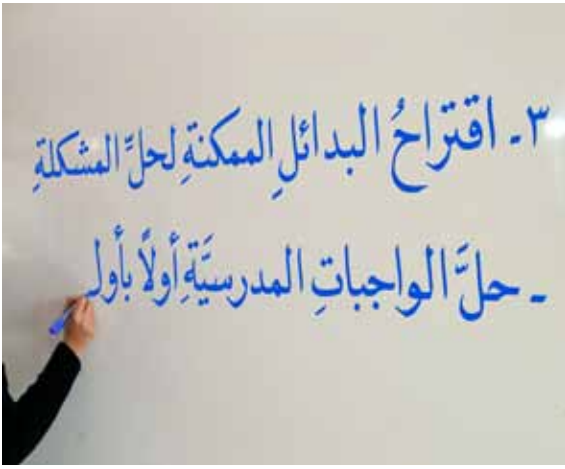 ٣ـ اقتراحُ البدائلِ الممكنةِ لحلِّ المشكلةِ
ـ حلَّ الواجباتِ المدرسيَّةِ أولاً بأول